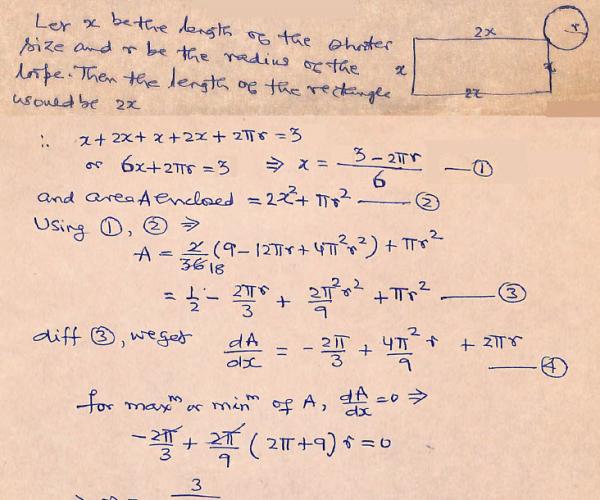 Let x be the length of the shorter
size and r be the radius of the
loope. Then the length of the rectangle
would be 2x
2x
r
x
x
2x
∴ x + 2x + x + 2x + 2πr = 3
or 6x + 2πr = 3 ⇒ x = (3 - 2πr)/6 — ①
and area A enclosed = 2x² + πr² — ②
Using ①, ② ⇒
A = 2/36 18 (9 - 12πr + 4π²r²) + πr²
= 1/2 - 2πr/3 + 2π²r²/9 + πr² — ③
diff ③, we get dA/dx = -2π/3 + 4π²r/9 + 2πr — ④
for maxᵐ or minᵐ of A, dA/dx = 0 ⇒
-2π/3 + 2π/9 (2π + 9) r = 0
3